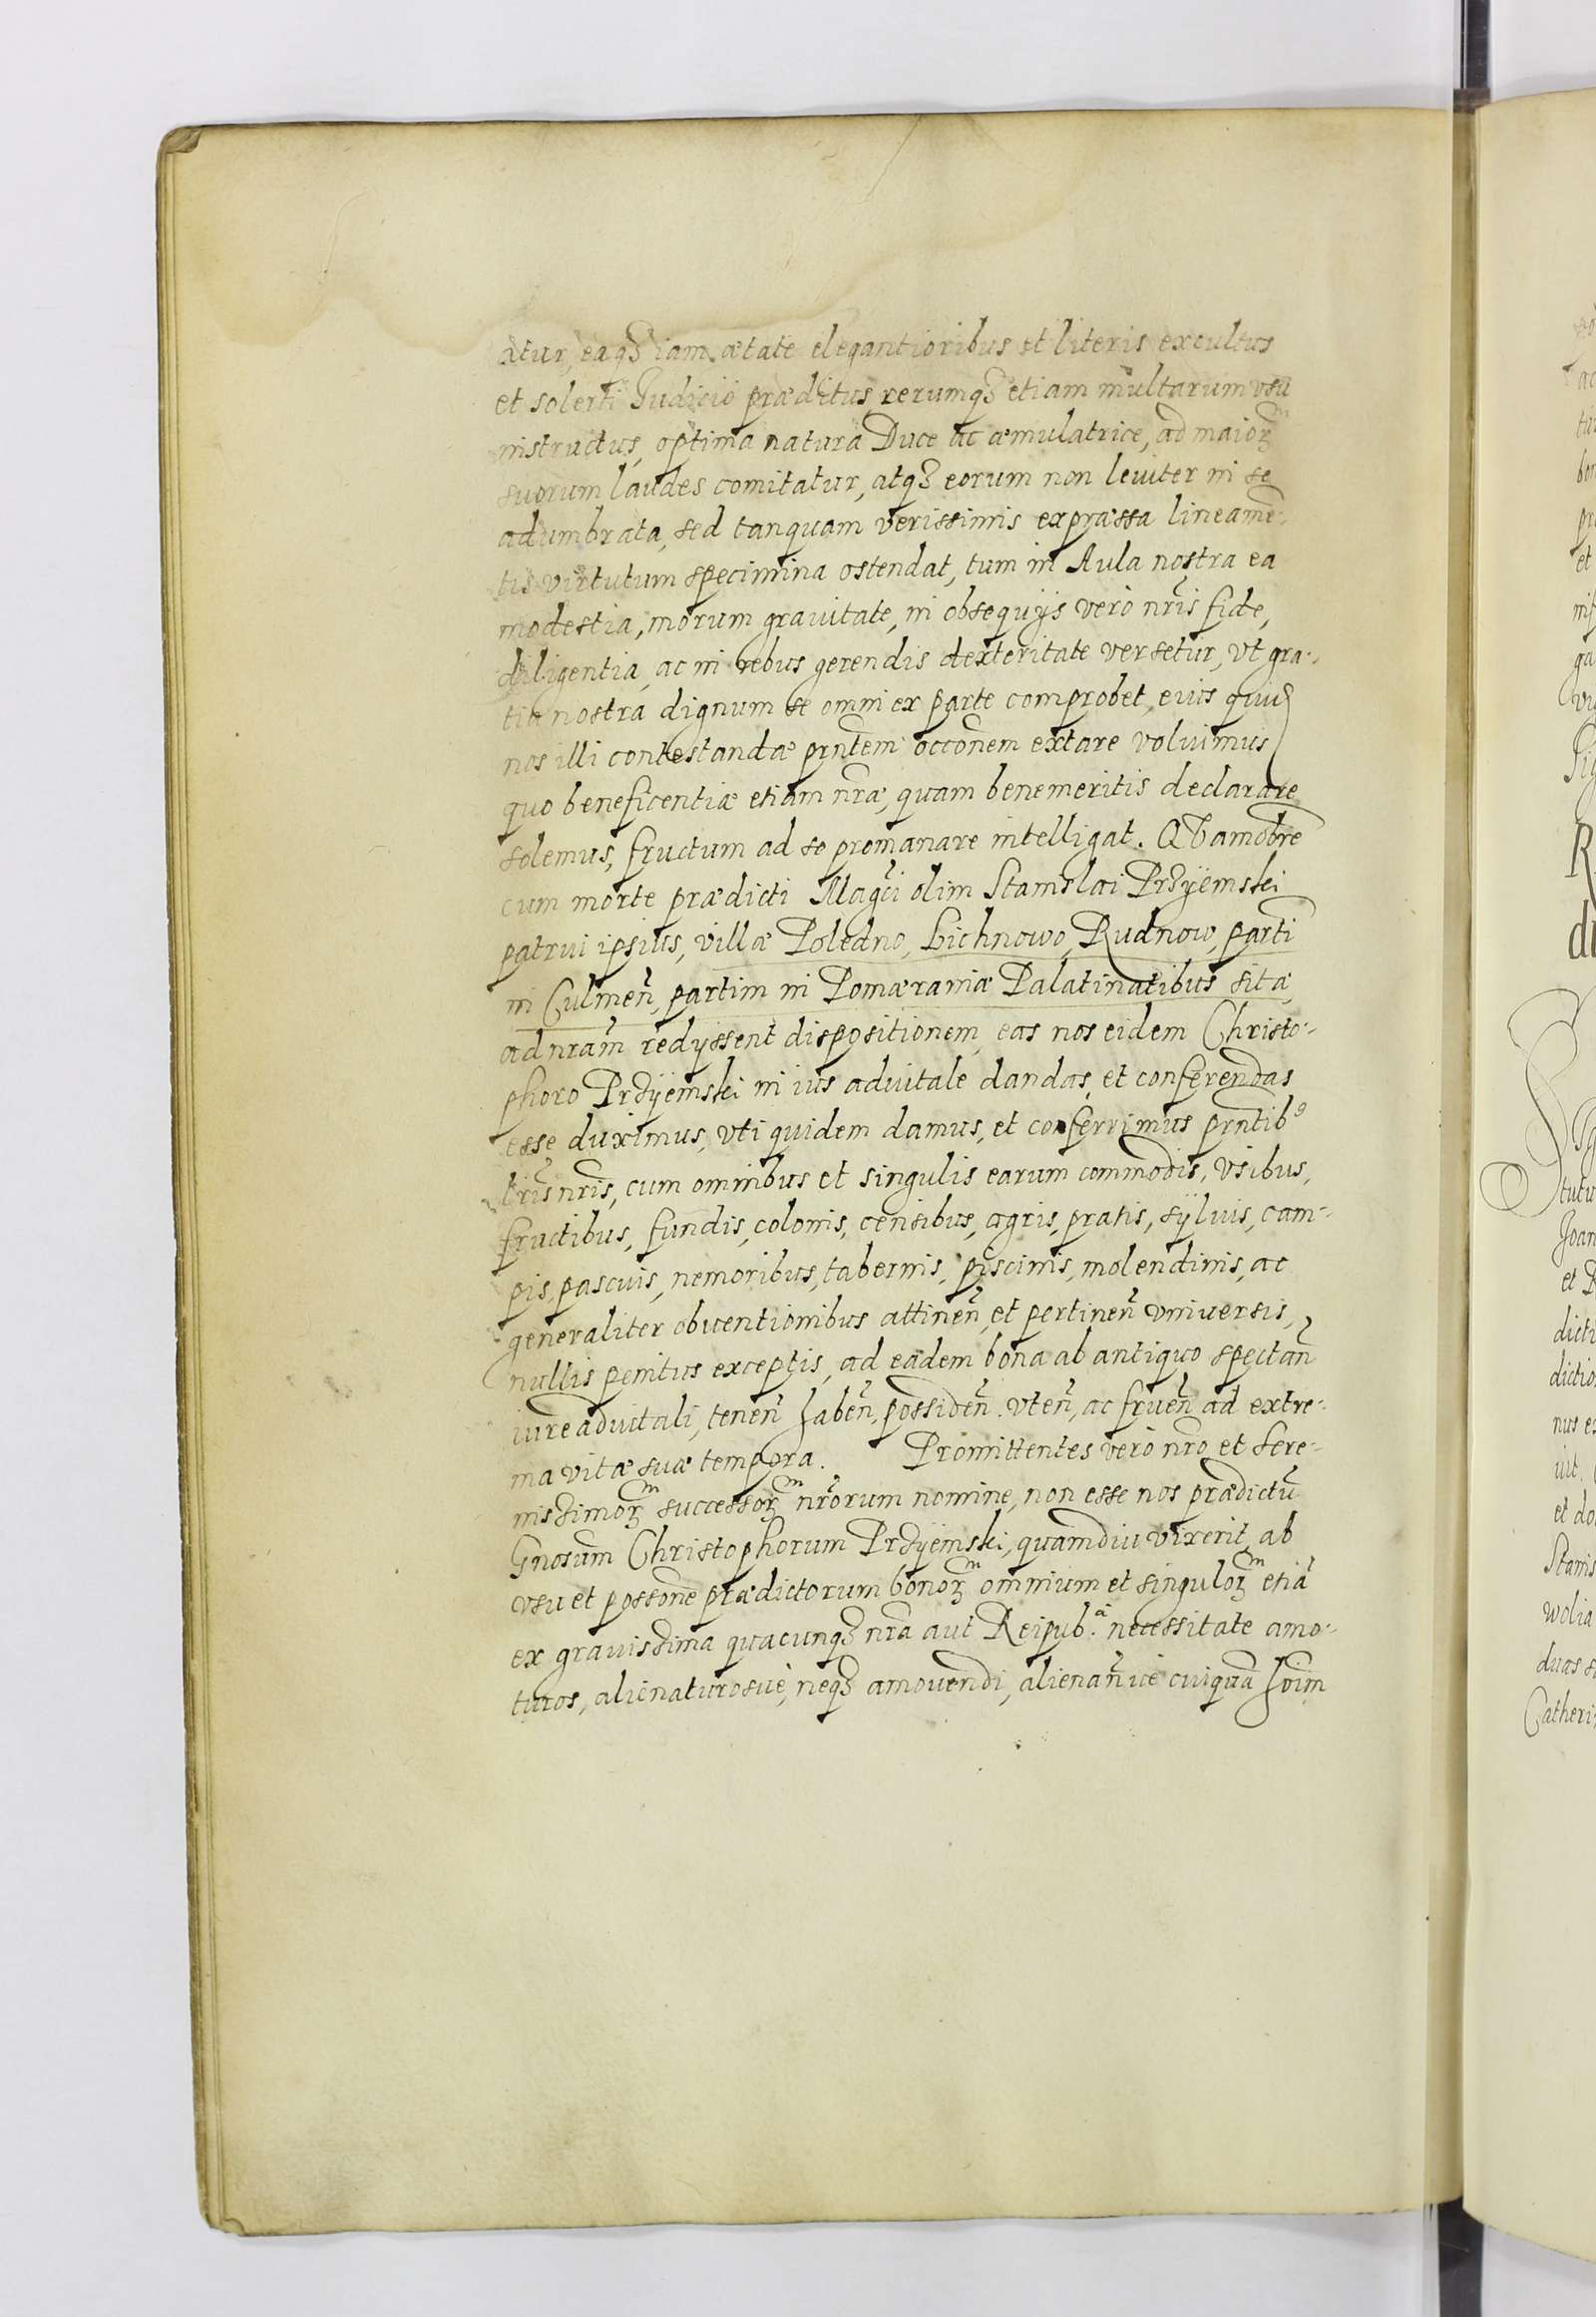 atur, eaqꝫ iam ætate elegantioribus et literis excultus
et solerti Judicio præditus rerumqꝫ etiam multarum vsu
instructus, optima natura Duce ac æmulatrice, ad maioꝝᵐ
suorum laudes comitatur, atqꝫ eorum non leviter in se
adumbrata, sed tanquam verissimis expræssa lineamē-
tis virtutum specimina ostendat, tum in Aula nostra ea
modestia, morum gravitate, in obsequijs verò nr̃is fide,
diligentia, ac in rebus gerendis dexteritate versetur, vt gra-
tia nostrâ dignum se omni ex parte comprobet, eius quiu
nos illi contestandæ prñtem occõnem extare voluimus
quo beneficentiæ etiam nr̃æ, quam benemeritis declarare
solemus, fructum ad se promanare intelligat. QVamobr̃e
cum morte prædicti Magc̃i olim Stanislai Prżÿiemski
patrui ipsius, villæ Poledno, Lichnowo, Rudnow, parti
in Culmeñ, partim in Pomæraniæ Palatinatibus sitæ,
ad nrãm redijssent dispositionem, eas nos eidem Christo-
phoro Prżÿiemski in ius aduitale dandas, et conferendas
esse duximus, vti quidem damus, et conferrimus prñtibꝰ
lr̃is nr̃is, cum omnibus et singulis earum commodis, vsibus,
fructibus, fundis, colonis, censibus, agris, pratis, sÿluis, cam-
pis, pascuis, nemoribus, tabernis, piscinis, molendinis, ac
generaliter obuentionibus attineñ, et pertineñ vniuersis,
nullis penitus exceptis, ad eadem bona ab antiquo spectañ
iure aduitali, teneñ habeñ, possideñ. vteñ, ac frueñ ad extre-
ma vitæ suæ tempora. Promittentes verò nr̃o et Sere-
nissimoꝝᵐ successoꝝᵐ nr̃orum nomine, non esse nos prædictũ
Gnosum Christophorum Prżÿiemski, quamdiu vixerit, ab
vsu et possõne prædictorum bonoꝝᵐ omnium et singuloꝝᵐ etiã
ex grauissima quacunqꝫ nr̃a aut Reipub.ᵃ necessitate amo-
turos, alienaturosuè, neqꝫ amouendi, alienañ uè cuiquã hoĩm